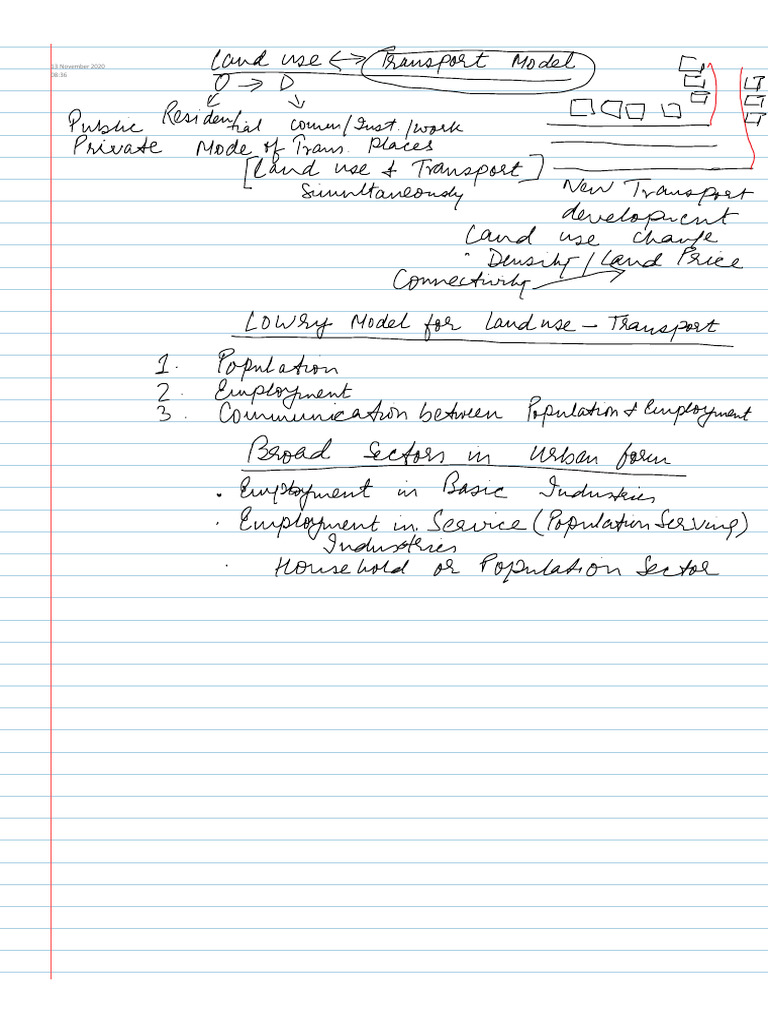 13 November 2020
08:36
Land use ↔ Transport Model
O → D
Residential comm/Inst./work Places
Public
Private Mode of Trans.
[Land use & Transport]
Simultaneously
New Transport
development
Land use change
· Density/Land Price
Connectivity
Lowry Model for Land use – Transport
1. Population
2. Employment
3. Communication between Population & Employment
Broad Sectors in Urban form
· Employment in Basic Industries
· Employment in Service (Population Serving)
Industries
· Household or Population Sector